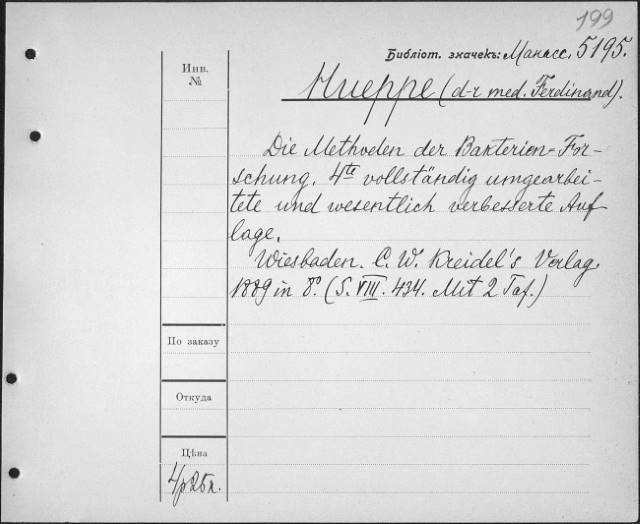 199
Библіот. значекъ: Манасс. 5195.
Инв.
№
Hueppe (d-r med. Ferdinand).
Die Methoden der Bakterien-For-
schung. 4te vollständig umgearbei-
tete und wesentlich verbesserte Auf
lage.
Wiesbaden. C. W. Kreidel's Verlag.
1889 in 8°. (S. VIII. 434. Mit 2 Taf.)
По заказу
Откуда
Цѣна
4р25к.